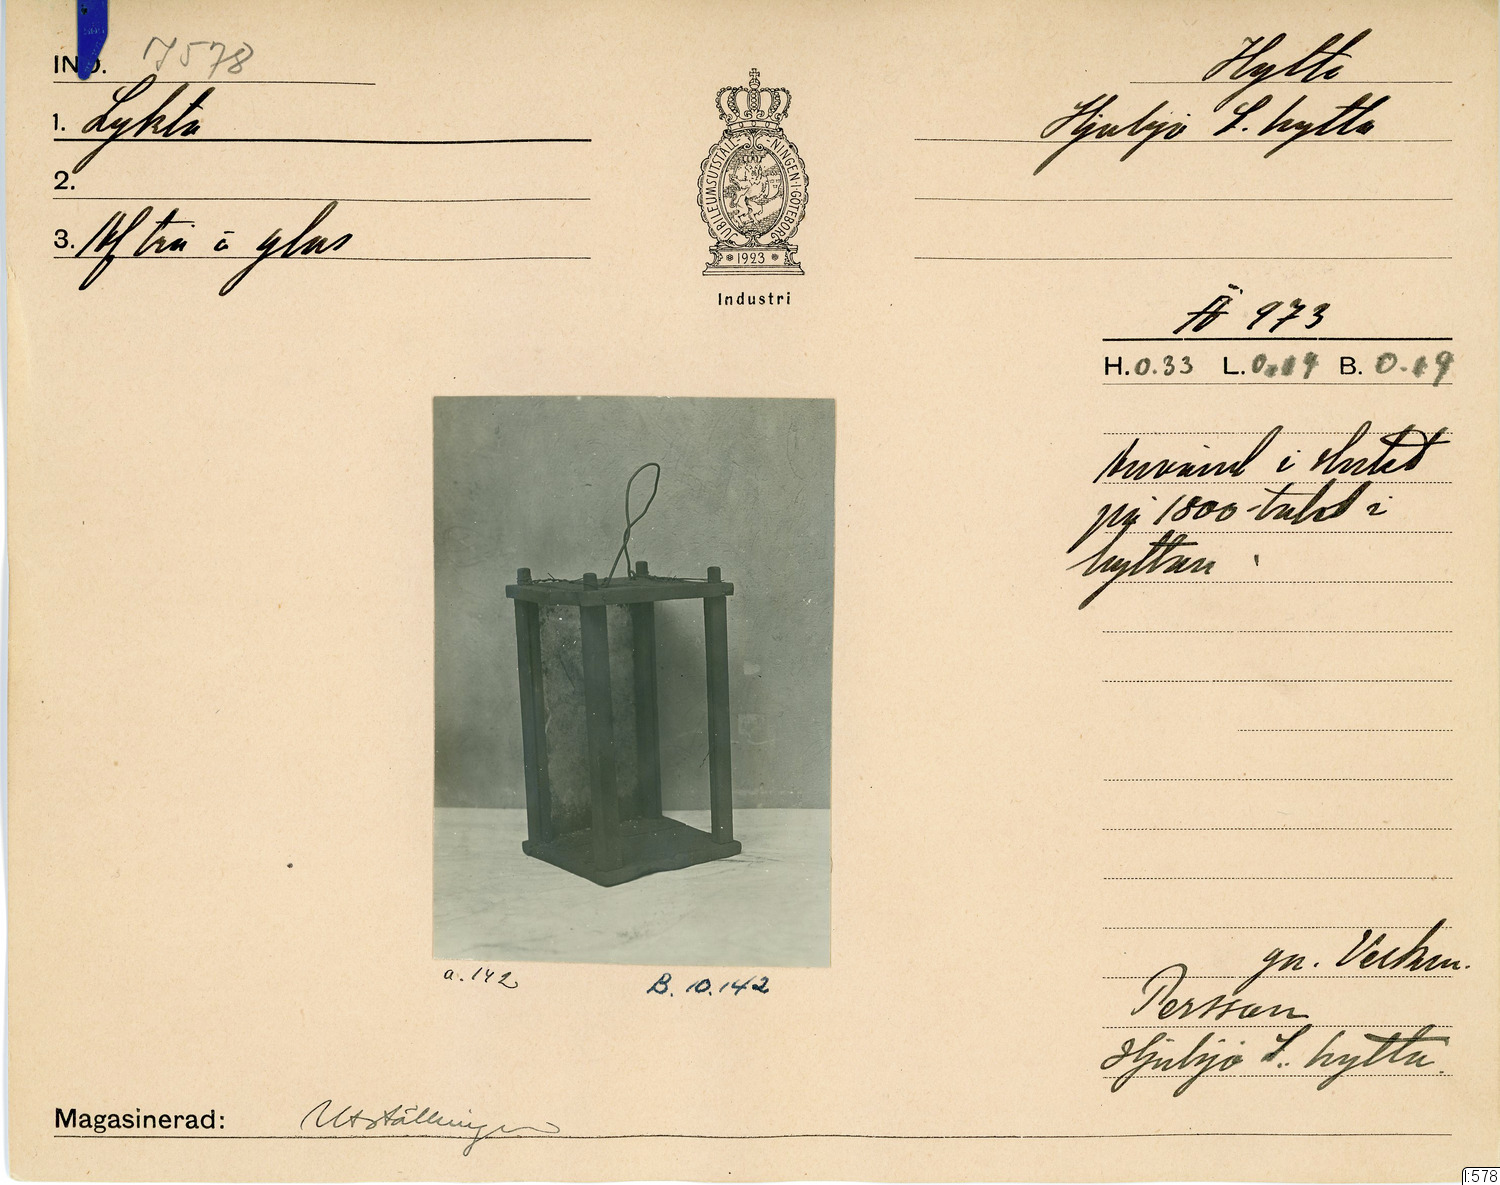 IND. I 578
1. Lykta
2.
3. Af trä o glas
JUBILEUMSUTSTÄLLNINGEN I GÖTEBORG
1923
Industri
Hytte
L. hytta
Ä 973
H. 0.33 L. 0.19 B. 0.19
Använd i slutet
på 1800-talet i
hyttan
a. 142
B. 10.142
gn.
Persson
L. hytta.
Magasinerad: Utställningen
I:578